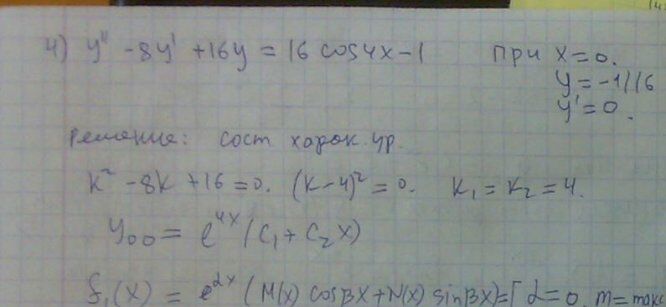 4) y'' - 8y' + 16y = 16 cos4x - 1 при x = 0.
y = -1/16
y' = 0.
Решение: сост харак. ур.
k² - 8k + 16 = 0. (k - 4)² = 0. k₁ = k₂ = 4.
y₀₀ = e^{4x} (C₁ + C₂ x)
f₁(x) = e^{αx} (M(x) cosβx + N(x) sinβx) = [ α = 0, m =